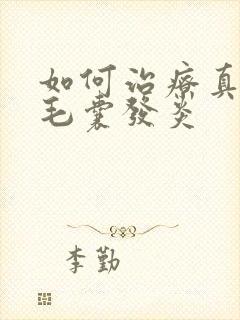 如何治療真
毛囊發炎
李勤